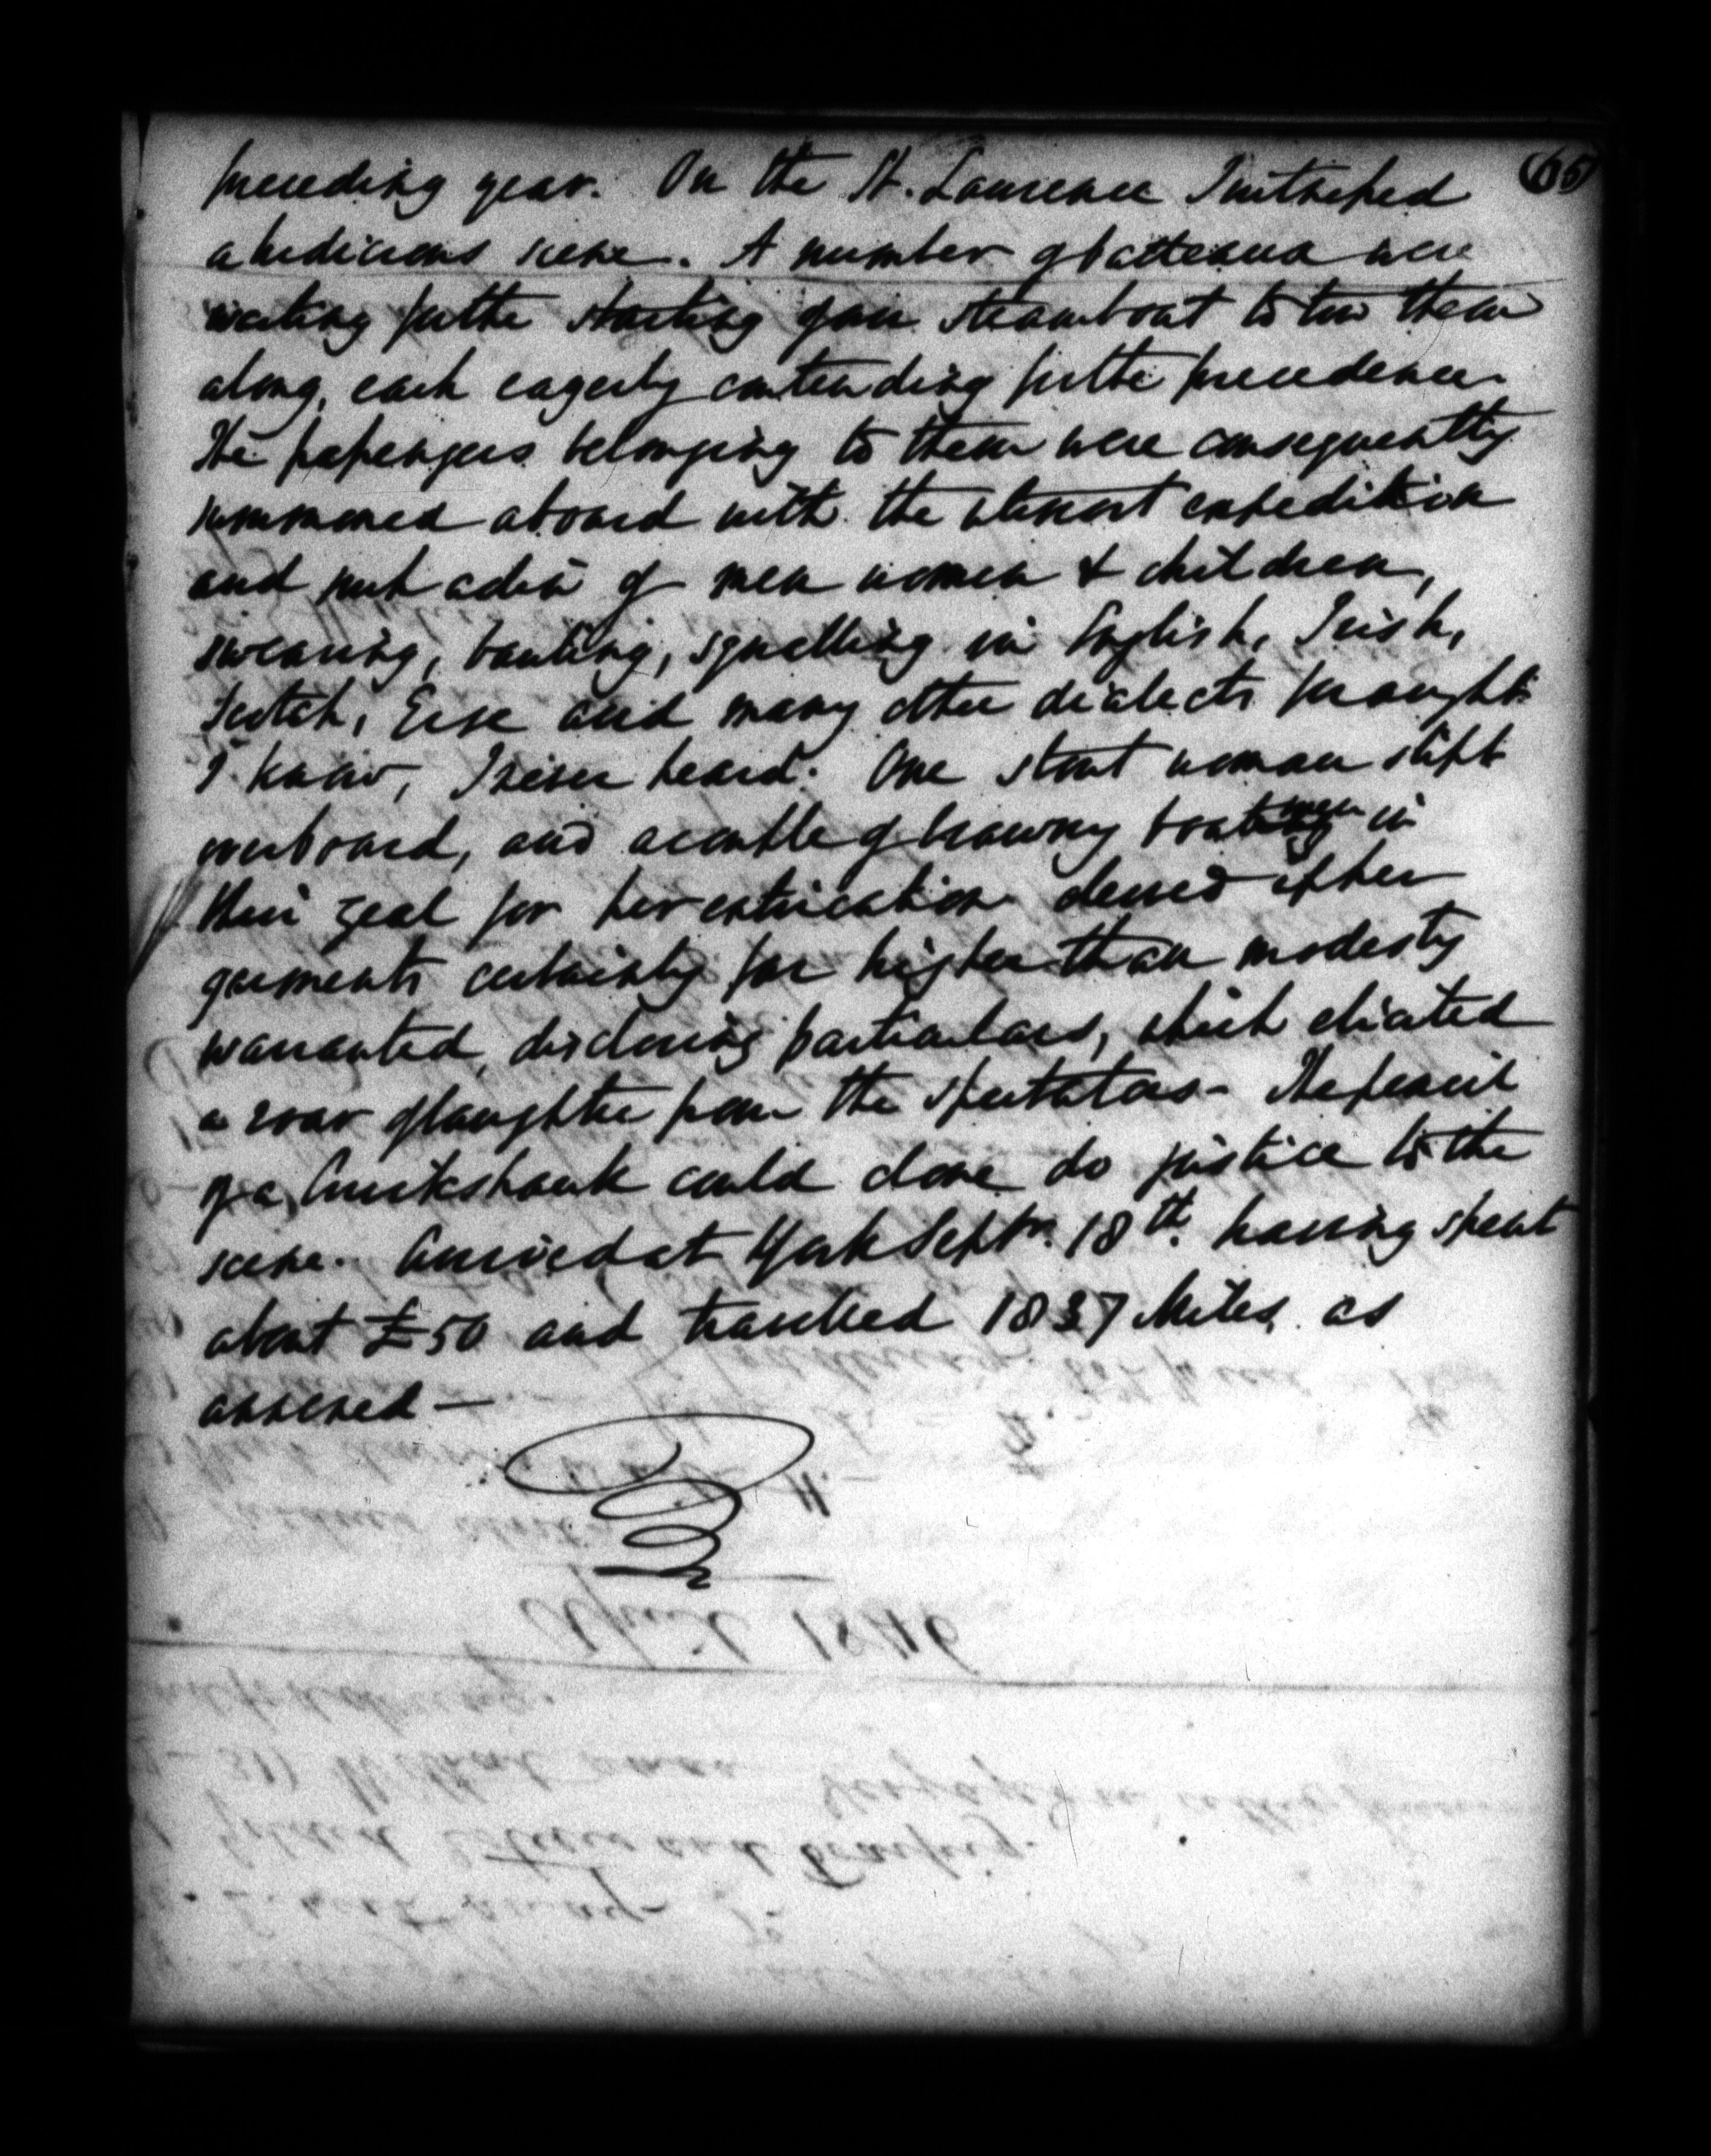 65
preceding year. On the St. Lawrence I witnessed
a ludicrous scene. A number of batteaux were
waiting for the starting of our steamboat to tow them
along, each eagerly contending for the precedence.
The passengers belonging to them were consequently
summoned aboard with the utmost expedition
and such a din of men women & children,
swearing, bawling, squalling in English, Irish,
Scotch, Erse and many other dialects for aught
I know, I never heard. One stout woman slipt
overboard, and a couple of brawny boatmen in
their zeal for her extrication drew up her
garments certainly far higher than modesty
warranted, disclosing particulars, which elicited
a roar of laughter from the spectators - The pencil
of a Cruikshank could alone do justice to the
scene. Arrived at York Septr. 18th. having spent
about £50 and travelled 1837 Miles, as
annexed —